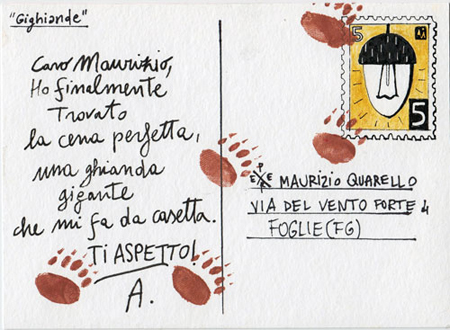 "Gighiande"
Caro Maurizio,
Ho finalmente
Trovato
la cena perfetta,
una ghianda
gigante
che mi fa da casetta.
TI ASPETTO!
A.
5
5
MAURIZIO QUARELLO
VIA DEL VENTO FORTE 4
FOGLIE (FG)